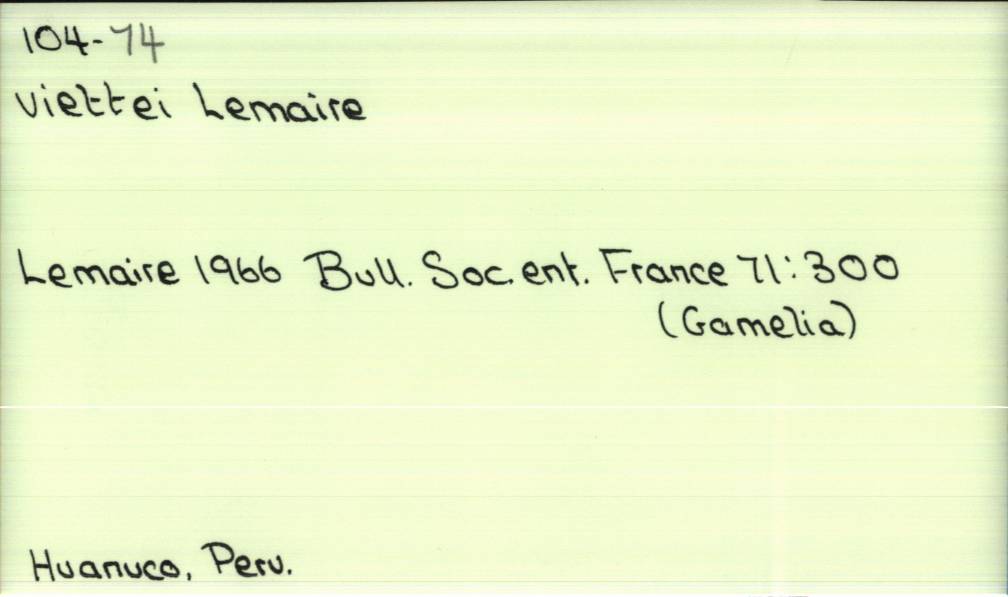 104-74
viettei Lemaire
Lemaire 1966 Bull. Soc. ent. France 71:300
(Gamelia)
Huanuco, Peru.